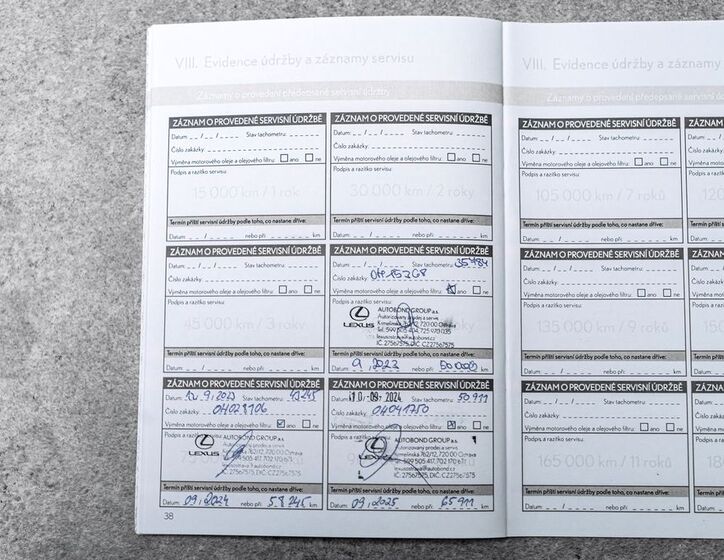 VIII. Evidence údržby a záznamy servisu
Záznamy o provedení předepsané servisní údržby
ZÁZNAM O PROVEDENÉ SERVISNÍ ÚDRŽBĚ
Datum: __/__/__ Stav tachometru:
Číslo zakázky:
Výměna motorového oleje a olejového filtru: ano ne
Podpis a razítko servisu:
15 000 km / 1 rok
Termín příští servisní údržby podle toho, co nastane dříve:
Datum: __/__ nebo při: km
ZÁZNAM O PROVEDENÉ SERVISNÍ ÚDRŽBĚ
Datum: __/__/__ Stav tachometru:
Číslo zakázky:
Výměna motorového oleje a olejového filtru: ano ne
Podpis a razítko servisu:
30 000 km / 2 roky
Termín příští servisní údržby podle toho, co nastane dříve:
Datum: __/__ nebo při: km
ZÁZNAM O PROVEDENÉ SERVISNÍ ÚDRŽBĚ
Datum: __/__/__ Stav tachometru:
Číslo zakázky:
Výměna motorového oleje a olejového filtru: ano ne
Podpis a razítko servisu:
45 000 km / 3 roky
Termín příští servisní údržby podle toho, co nastane dříve:
Datum: __/__ nebo při: km
ZÁZNAM O PROVEDENÉ SERVISNÍ ÚDRŽBĚ
Datum: __/__/__ Stav tachometru: 35784
Číslo zakázky:
Výměna motorového oleje a olejového filtru: ano ne
Podpis a razítko servisu:
LEXUS
AUTOBOND GROUP a.s.
Autorizovaný prodej a servis
Termín příští servisní údržby podle toho, co nastane dříve:
Datum: 9, 2023 nebo při: 50000 km
ZÁZNAM O PROVEDENÉ SERVISNÍ ÚDRŽBĚ
Datum: Stav tachometru: 43245
Číslo zakázky:
Výměna motorového oleje a olejového filtru: ano ne
Podpis a razítko servisu:
LEXUS
AUTOBOND GROUP a.s.
Termín příští servisní údržby podle toho, co nastane dříve:
Datum: 09, 2024 nebo při: 58245 km
ZÁZNAM O PROVEDENÉ SERVISNÍ ÚDRŽBĚ
-09- 2024 Stav tachometru: 50911
Číslo zakázky: 04041750
Výměna motorového oleje a olejového filtru: ano ne
Podpis a razítko servisu:
LEXUS
AUTOBOND GROUP a.s.
Termín příští servisní údržby podle toho, co nastane dříve:
Datum: 09, 2025 nebo při: 65911 km
38
VIII. Evidence údržby a záznamy
Záznamy o provedení předepsané servisní
ZÁZNAM O PROVEDENÉ SERVISNÍ ÚDRŽBĚ
Datum: __/__/__ Stav tachometru:
Číslo zakázky:
Výměna motorového oleje a olejového filtru: ano ne
Podpis a razítko servisu:
105 000 km / 7 roků
Termín příští servisní údržby podle toho, co nastane dříve:
Datum: __/__ nebo při: km
ZÁZNAM O PROVEDENÉ SERVISNÍ ÚDRŽBĚ
Datum: __/__/__ Stav tachometru:
Číslo zakázky:
Výměna motorového oleje a olejového filtru: ano ne
Podpis a razítko servisu:
135 000 km / 9 roků
Termín příští servisní údržby podle toho, co nastane dříve:
Datum: __/__ nebo při: km
ZÁZNAM O PROVEDENÉ SERVISNÍ ÚDRŽBĚ
Datum: __/__/__ Stav tachometru:
Číslo zakázky:
Výměna motorového oleje a olejového filtru: ano ne
Podpis a razítko servisu:
165 000 km / 11 roků
Termín příští servisní údržby podle toho, co nastane dříve:
Datum: __/__ nebo při: km